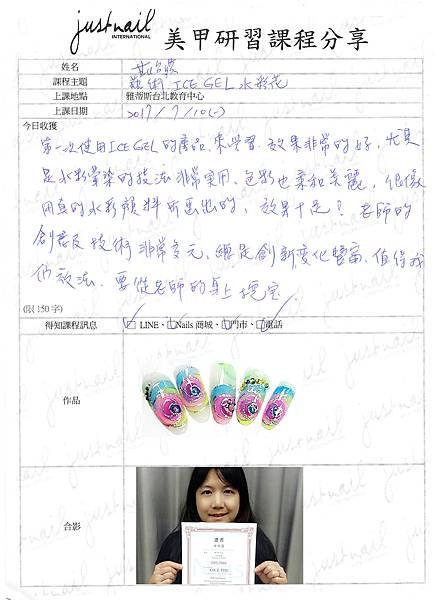 justnail
INTERNATIONAL
美甲研習課程分享
姓名
課程主題 藝術 ICE GEL 水彩花
上課地點 雅蒂斯台北教育中心
上課日期 2017/7/10(一)
今日收獲
第一次使用ICE GEL的產品來學習.效果非常的好,尤其
是水彩暈染的技法非常實用、色彩也柔和美麗,很像
用真的水彩顏料所画出的,效果十足!老師的
創意及技術非常多元,總是創新变化豐富,值得我
們效法.要從老師的身上挖宝.
(限 150 字)
得知課程訊息 LINE、Nails 商城、門市、電話
作品
合影
證書